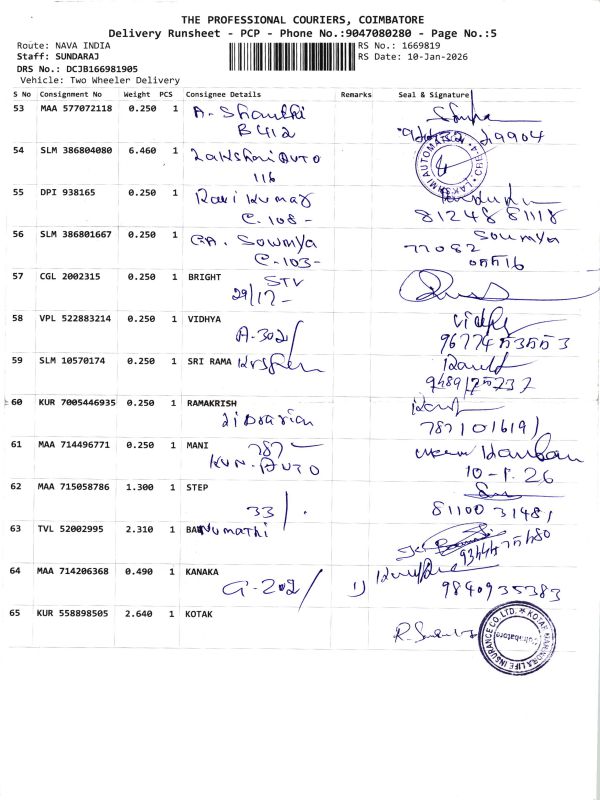 THE PROFESSIONAL COURIERS, COIMBATORE
Delivery Runsheet - PCP - Phone No.:9047080280 - Page No.:5
Route: NAVA INDIA
RS No.: 1669819
Staff: SUNDARAJ
RS Date: 10-Jan-2026
DRS No.: DCJB166981905
Vehicle: Two Wheeler Delivery
S No Consignment No Weight PCS Consignee Details Remarks Seal & Signature
53 MAA 577072118 0.250 1 A. Shanthi
B 412
29904
54 SLM 386804080 6.460 1 Lakshmi Auto
116
LAKSHMI AUTOMAT
55 DPI 938165 0.250 1 Ravi Kumar
C-108-
81248 81118
56 SLM 386801667 0.250 1 Sowmya
C-103-
Soumya
77082
57 CGL 2002315 0.250 1 BRIGHT STV
29/17-
58 VPL 522883214 0.250 1 VIDHYA
A-302/
59 SLM 10570174 0.250 1 SRI RAMA
60 KUR 7005446935 0.250 1 RAMAKRISH
Librarian
7871016191
61 MAA 714496771 0.250 1 MANI 787-
KUN. AUTO
10-1.26
62 MAA 715058786 1.300 1 STEP
33/.
81100 31481
63 TVL 52002995 2.310 1 BANumathi
64 MAA 714206368 0.490 1 KANAKA
G-202/
1)
9840935383
65 KUR 558898505 2.640 1 KOTAK
KOTAK MAHINDRA LIFE INSURANCE CO. LTD.
Coimbatore